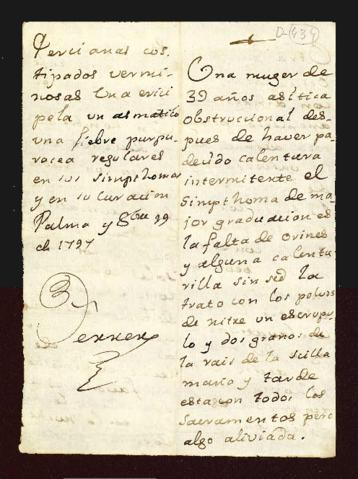 Tercianas cos
tipados vermi-
nosas una erici
pela un asmatico
una fiebre purpu
rocea regulares
en sus simpthomas
y en su curacion
Palma y 8bre 99
de 1797
Ferrer
D-(434)
Una muger de
39 años asitica
obstruccional des
pues de haver pa
decido calentura
intermitente el
Simpthoma de ma
jor graduacion es
la falta de orines
y alguna calentu
rilla sin sed la
trato con los polvos
de nitre un escrupu
lo y dos granos de
la rais de la scilla
mario y tarde
esta con todos los
Sacramentos pero
algo aliviada.